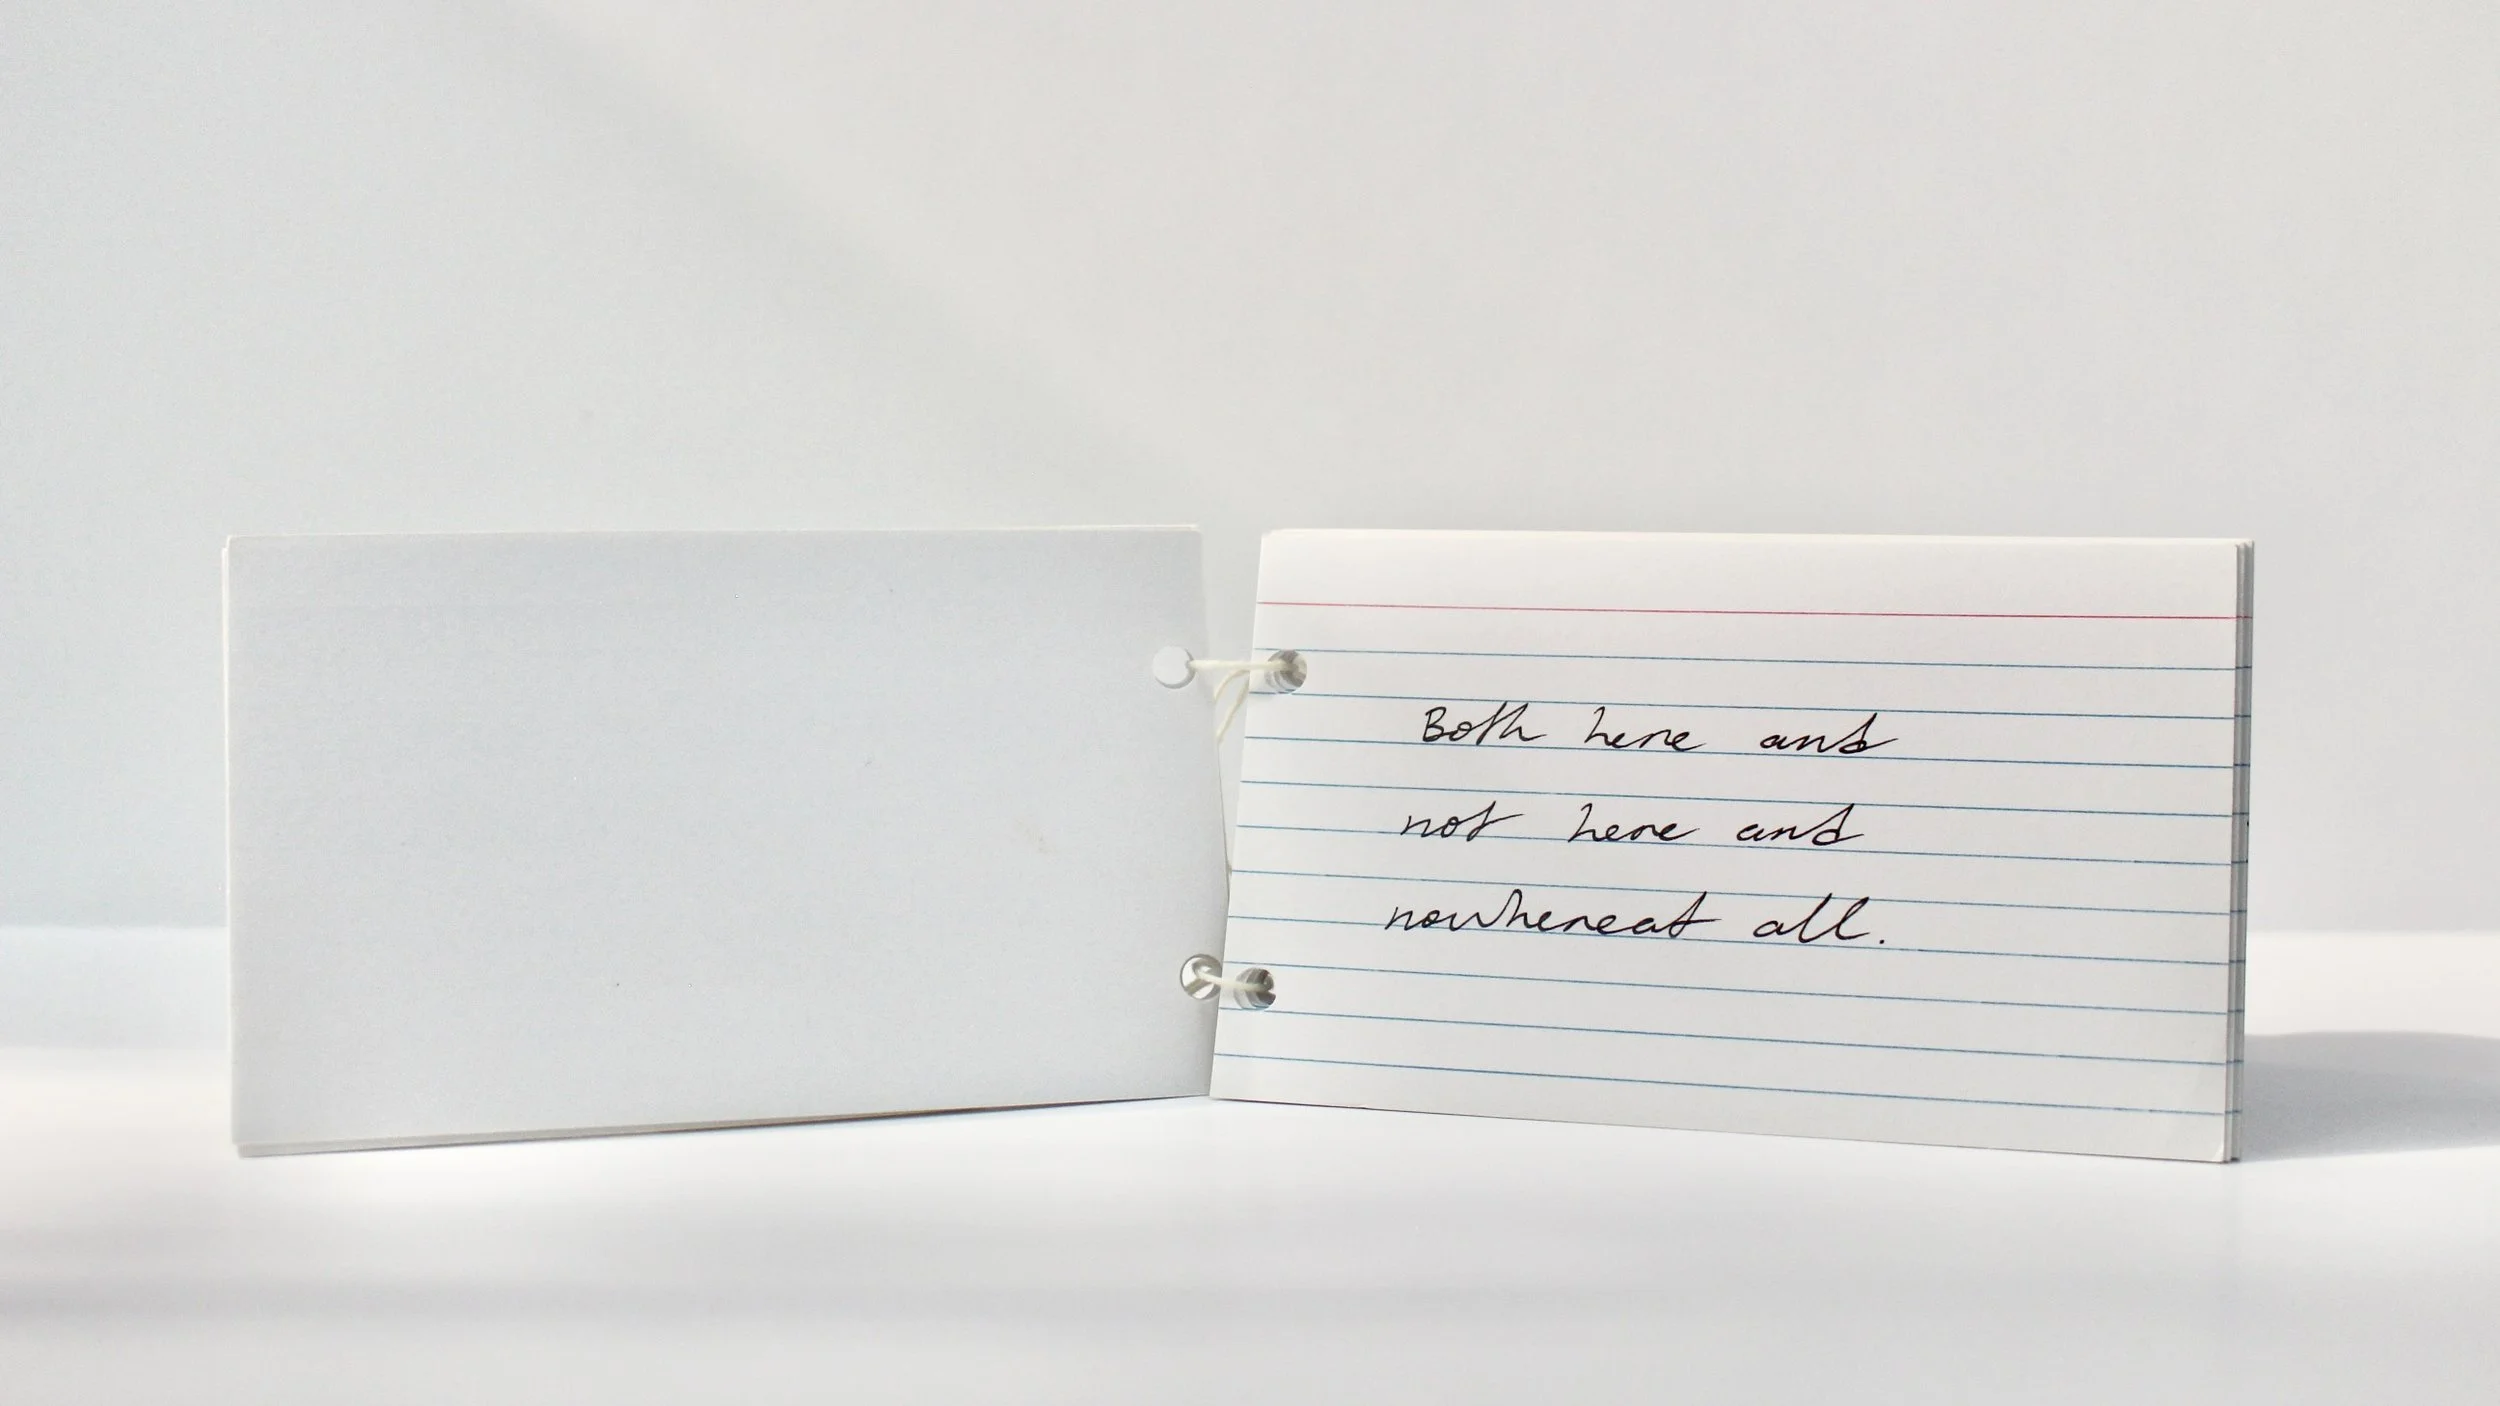 Both here and
not here and
nowhereat all.